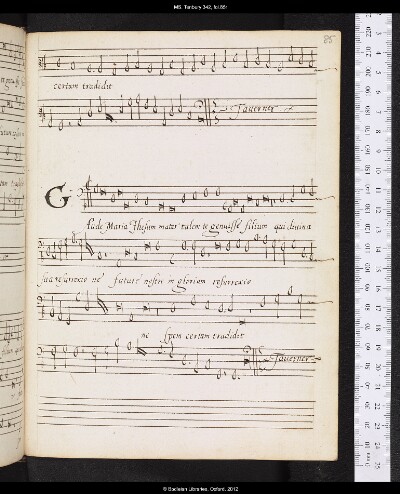 MS. Tenbury 342, fol.85r
85
certum tradidit
Taverner
G
Aude Maria Jhesum mater talem te genuisse filium qui diuina
sua resurrectio ne future nostre in gloriam resurrectio
ne spem certam tradidit
Taverner
© Bodleian Libraries, Oxford, 2012